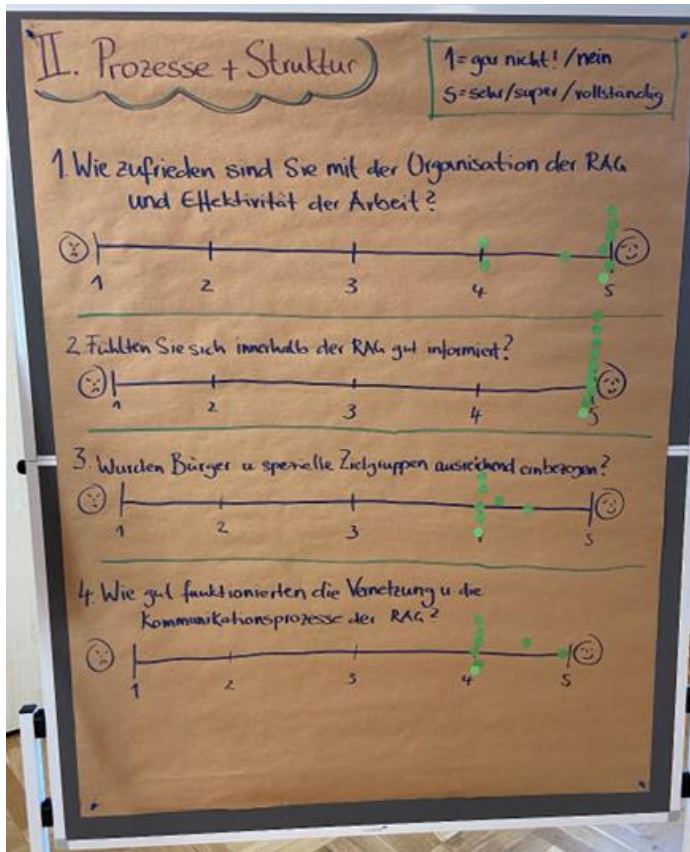 II. Prozesse + Struktur
1 = gar nicht! / nein
5 = sehr / super / vollständig
1. Wie zufrieden sind Sie mit der Organisation der RAG
und Effektivität der Arbeit?
1 2 3 4 5
2. Fühlten Sie sich innerhalb der RAG gut informiert?
1 2 3 4 5
3. Wurden Bürger u spezielle Zielgruppen ausreichend einbezogen?
1 2 3 5
4. Wie gut funktionierten die Vernetzung u die
Kommunikationsprozesse der RAG?
1 2 3 4 5